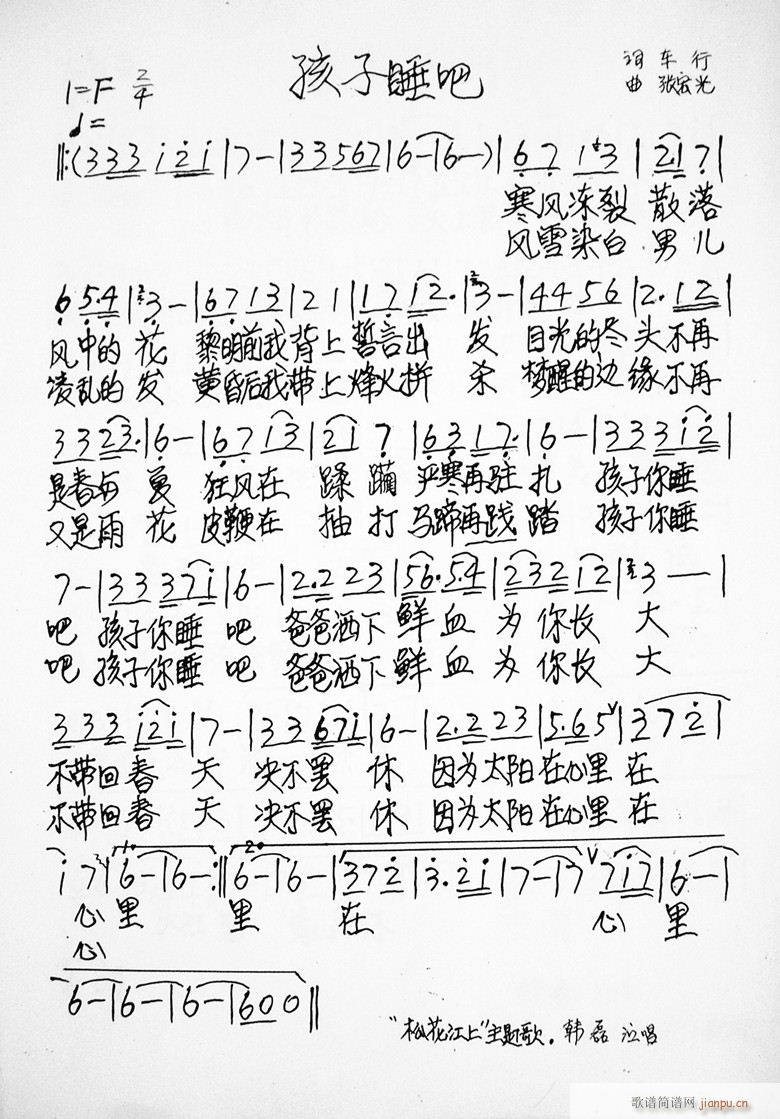 孩子睡吧
词 车 行
曲 张宏光
1=F 2/4
♩=
‖:(3 3 3 i 2 i | 7 - | 3 3 5 6 7 | 6 - | 6 -) | 6 7 1 3 | 2·1 7 |
寒风冻裂 散落
风雪染白 男儿
6 5·4 | 3 - | 6 7 1 3 | 2 1 | 1 7 1 2· | 3 - | 4 4 5 6 | 2· 1 2 |
风中的 花 黎明前我 背上 誓言出 发 目光的尽 头不再
凌乱的 发 黄昏后我 带上 烽火拼 杀 梦醒的边 缘不再
3 3 2 3· | 6 - | 6 7 1 3 | 2 1 7 | 6 3 1 7· | 6 - | 3 3 3 i 2 |
是春与 夏 狂风在 蹂 躏 严寒再驻 扎 孩子你睡
又是雨 花 皮鞭在 抽 打 马蹄再践 踏 孩子你睡
7 - | 3 3 3 7 i | 6 - | 2·2 2 3 | 5 6·5·4 | 2 3 2 1 2 | 3 - - |
吧 孩子你睡 吧 爸爸洒下 鲜血 为你长 大
吧 孩子你睡 吧 爸爸洒下 鲜血 为你长 大
3 3 3 i 2 i | 7 - | 3 3 6 7 i | 6 - | 2·2 2 3 | 5·6 5 ∨ | 3 7 2 |
不带回春 天 决不罢 休 因为太阳在心里 在
不带回春 天 决不罢 休 因为太阳在心里 在
i 7 | 1. 6 - | 6 - :‖ 2. 6 - | 6 - | 3 7 2 | 3· 2 i | 7 - | 7 ∨ 7 i 7 | 6 - |
心 里 里 在 心 里
心
6 - | 6 - | 6 - | 6 0 0 ‖
"松花江上"主题歌. 韩磊 演唱
歌谱简谱网
jianpu.cn